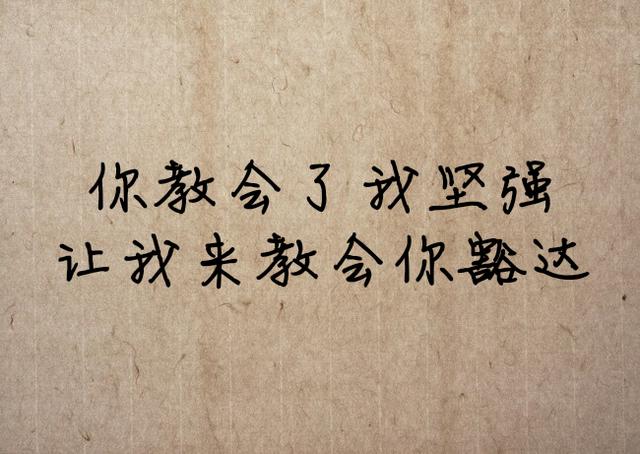 你教会了我坚强
让我来教会你豁达